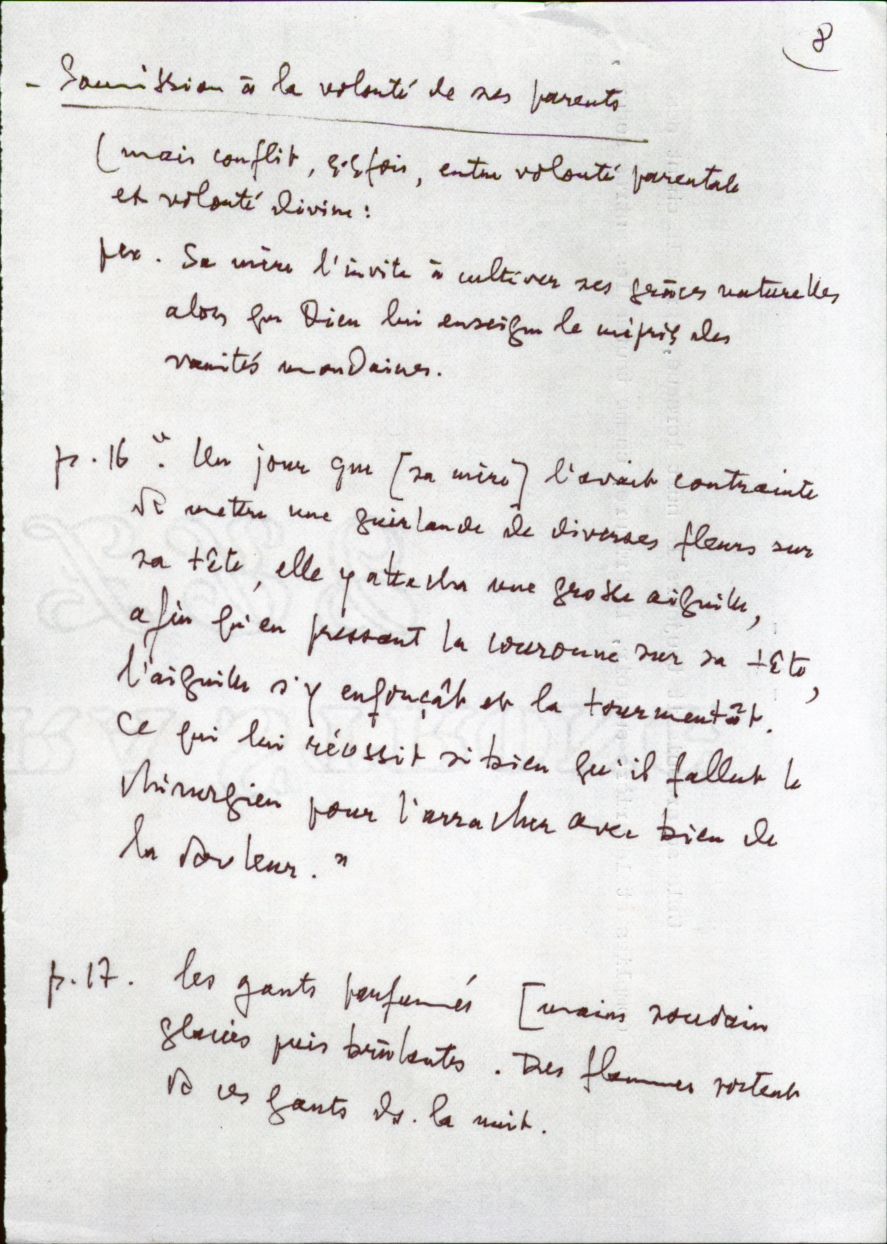 8
- Soumission à la volonté de ses parents
(mais conflit, qqfois, entre volonté parentale
et volonté divine :
pex. Sa mère l'invite à cultiver ses grâces naturelles
alors que Dieu lui enseigne le mépris des
vanités mondaines.
p. 16 ". Un jour que [sa mère] l'avait contrainte
de mettre une guirlande de diverses fleurs sur
sa tête, elle y attacha une grosse aiguille,
afin qu'en pressant la couronne sur sa tête,
l'aiguille s'y enfonçât et la tourmentât.
Ce qui lui réussit si bien qu'il fallut le
chirurgien pour l'arracher avec bien de
la douleur."
p. 17. les gants parfumés [mains soudain
glacées puis brûlantes. Des flammes sortent
de ces gants ds. la nuit.